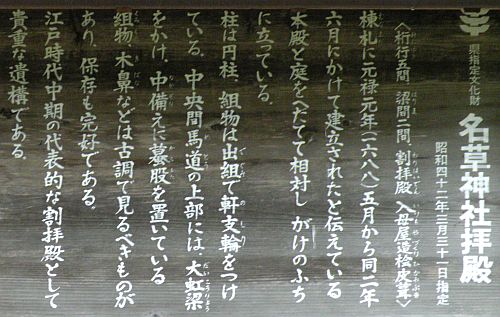 県指定文化財
名草神社拝殿
昭和四十二年三月三十一日指定
〈桁行五間 梁間二間、割拝殿 入母屋造桧皮葺〉
棟札に元禄元年(一六八八)五月から同二年
六月にかけて建立されたと伝えている
本殿と庭をへだてて相対し がけのふち
に立っている。
柱は円柱、組物は出組で軒支輪をつけ
ている。中央間馬道の上部には、大虹梁
をかけ、中備えに蟇股を置いている
組物、木鼻などは古調で見るべきものが
あり、保存も完好である。
江戸時代中期の代表的な割拝殿として
貴重な遺構である。